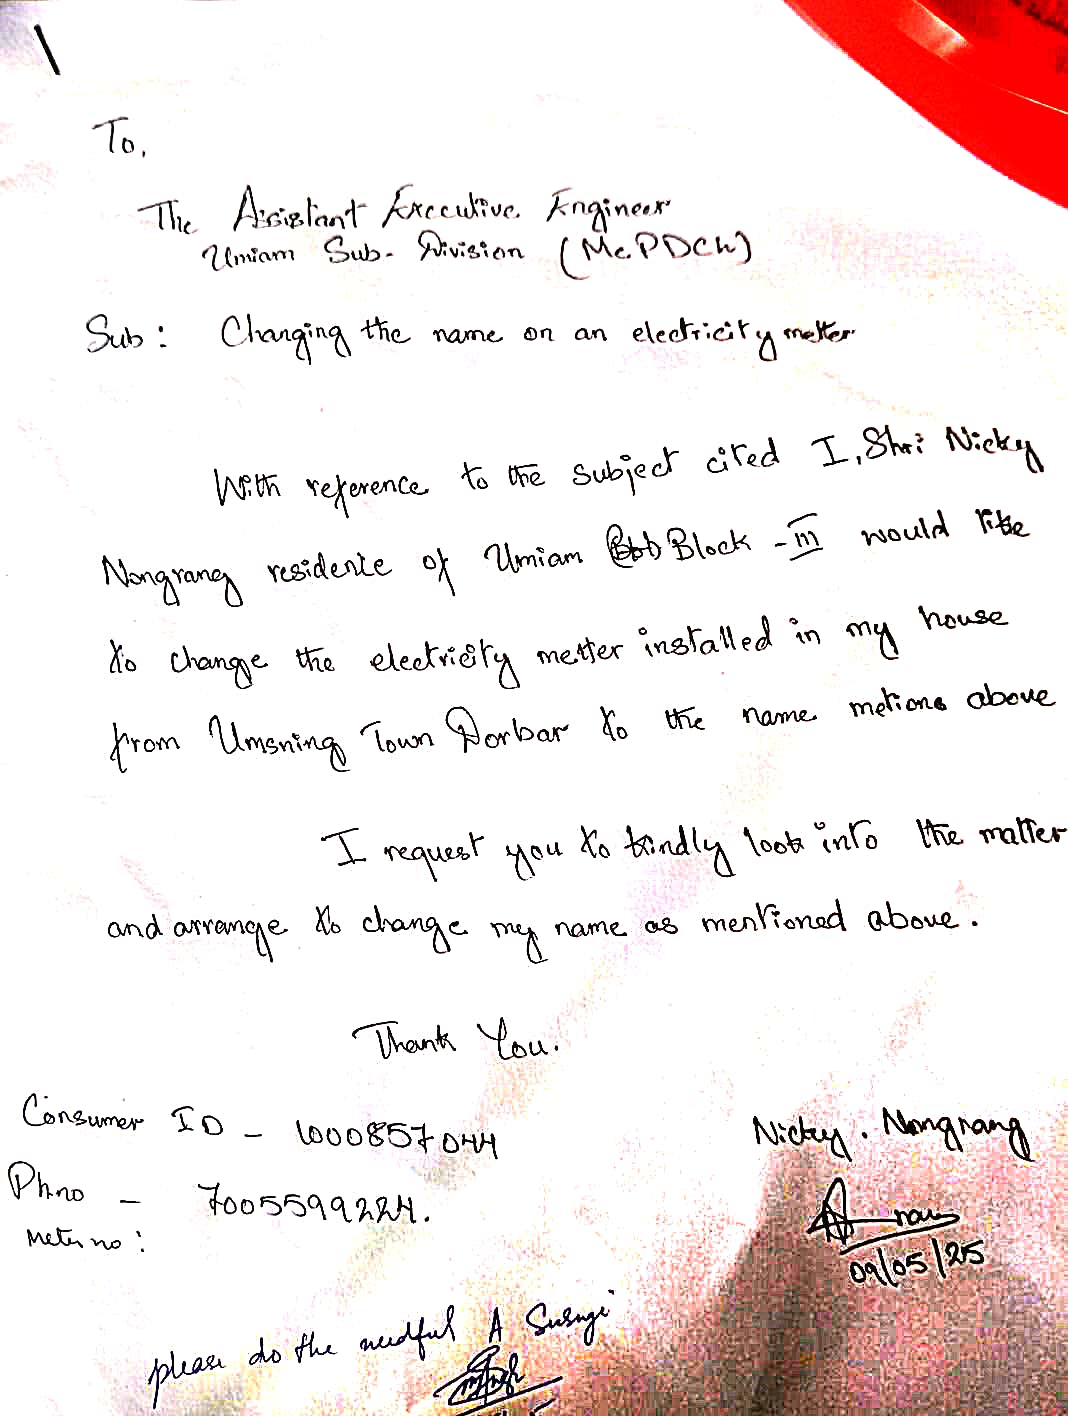 To,
The Assistant Executive Engineer
Umiam Sub-Division (Me.PDCL)
Sub: Changing the name on an electricity metter
With reference to the subject cited I, Shri Nicky
Nongrang residente of Umiam Block - III would like
to change the electricity metter installed in my house
from Umsning Town Dorbar to the name metions above
I request you to kindly look into the matter
and arrange to change my name as mentioned above.
Thank You.
Consumer ID - 1000857044
Nicky. Nongrang
Ph.no - 7005599224.
Meter no:
09/05/25
please do the needful A